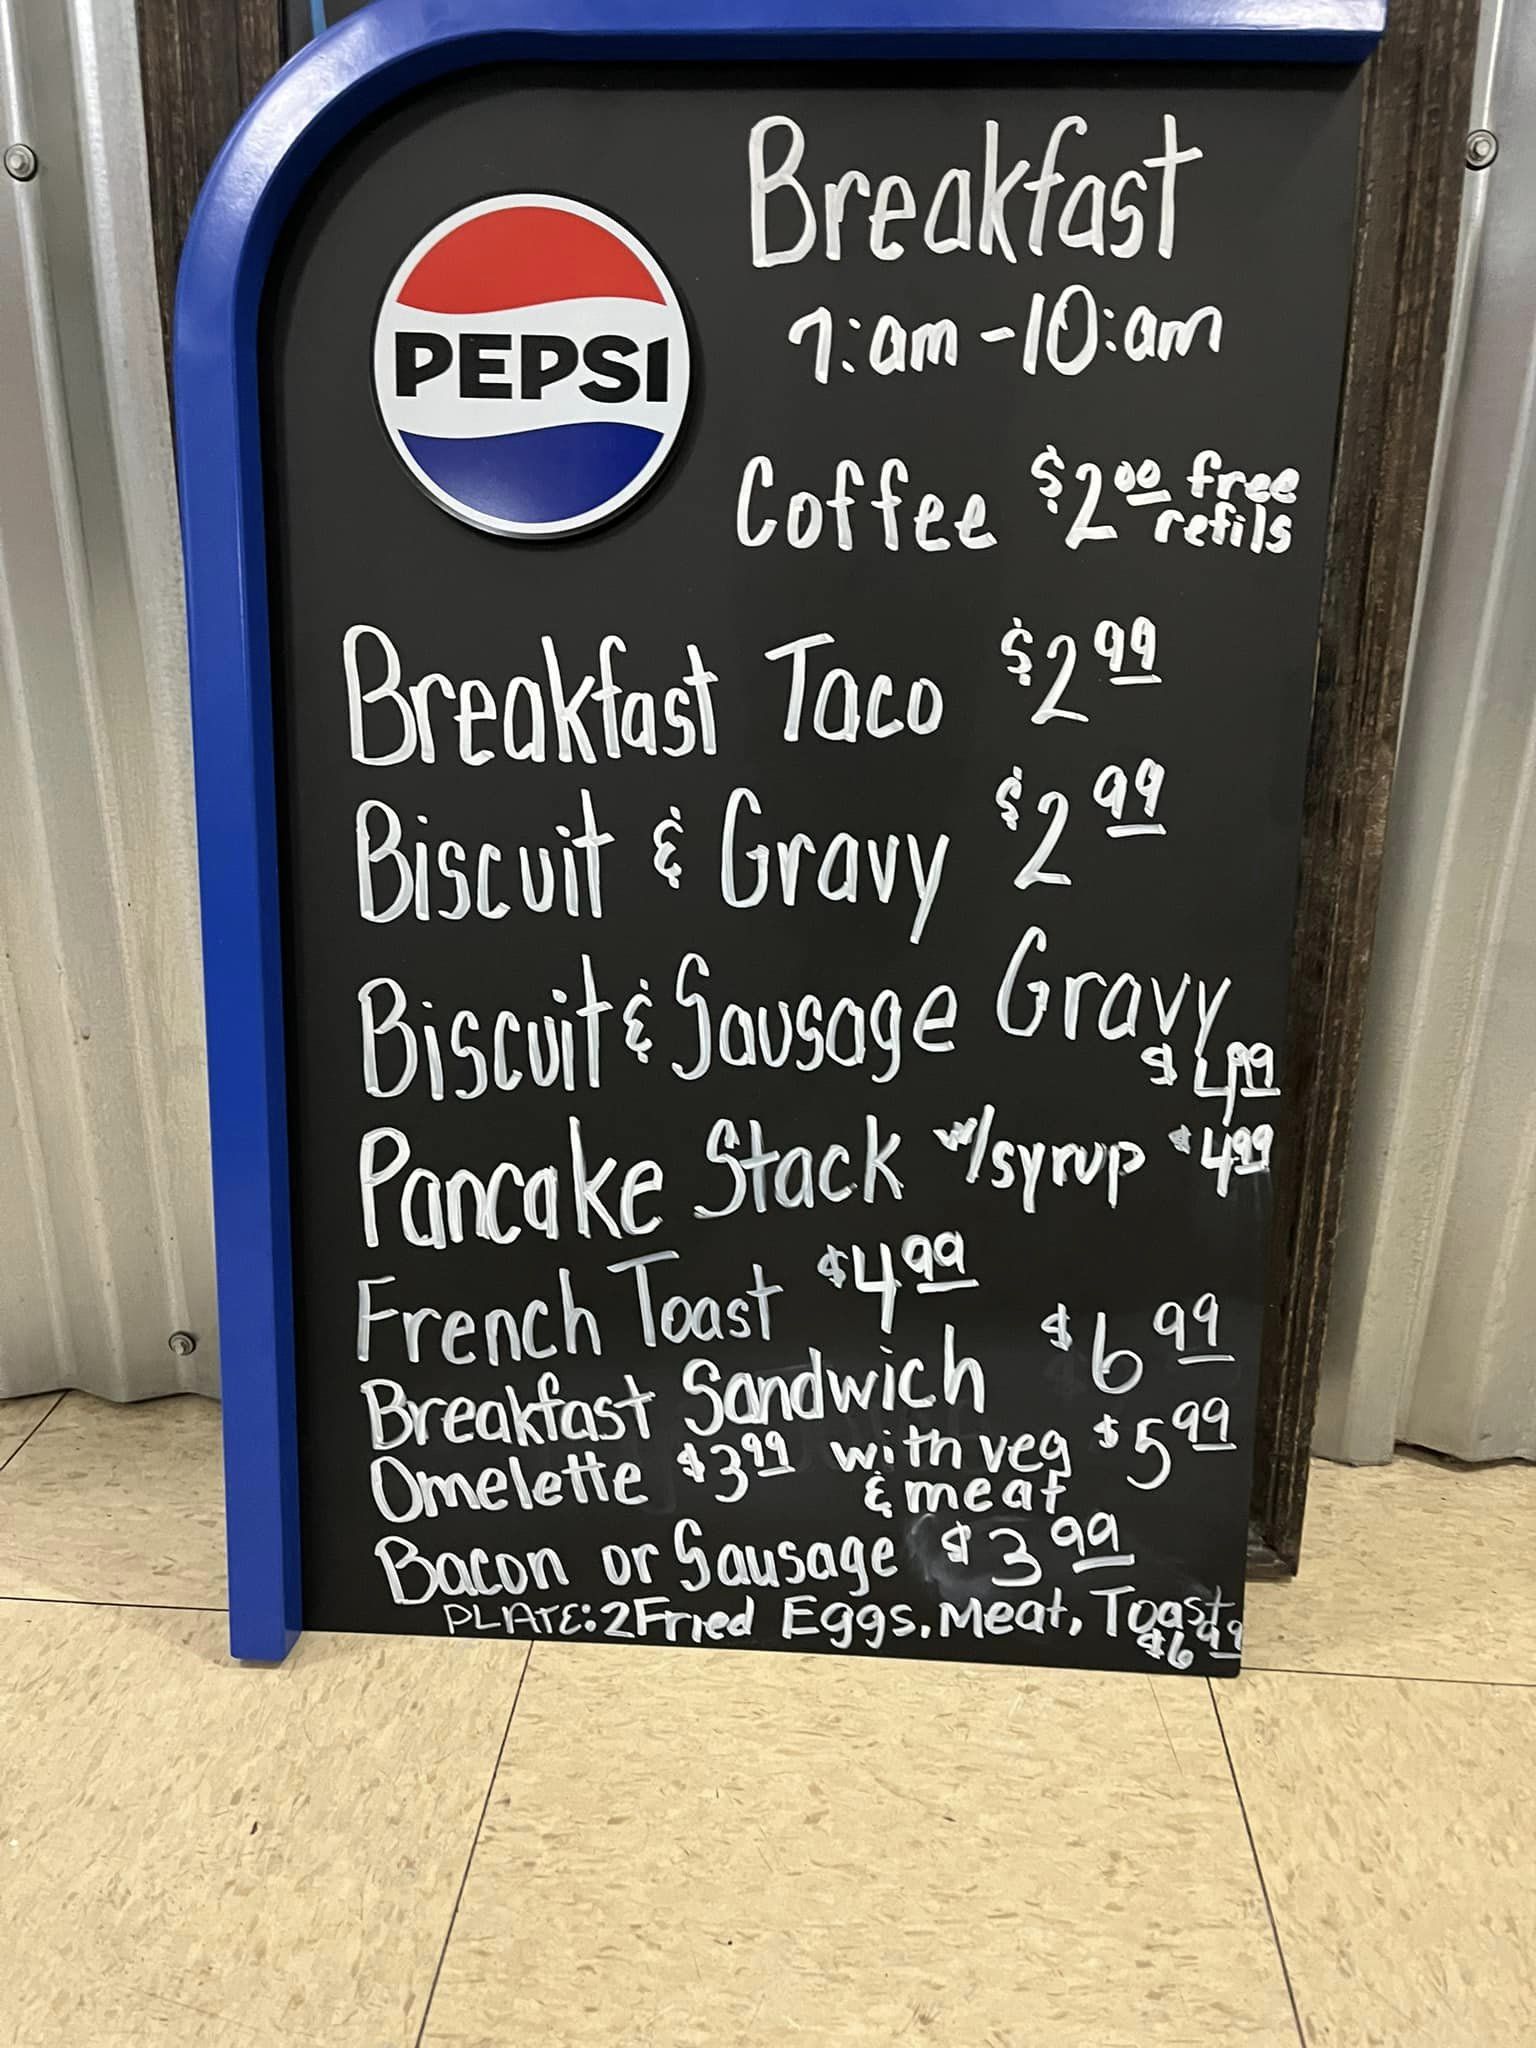 PEPSI
Breakfast
7:am - 10:am
Coffee $2.00 free refils
Breakfast Taco $2.99
Biscuit & Gravy $2.99
Biscuit & Sausage Gravy
$4.99
Pancake Stack w/syrup $4.99
French Toast $4.99
Breakfast Sandwich $6.99
Omelette $3.99 with veg & meat $5.99
Bacon or Sausage $3.99
PLATE: 2 Fried Eggs, Meat, Toast
$6.99